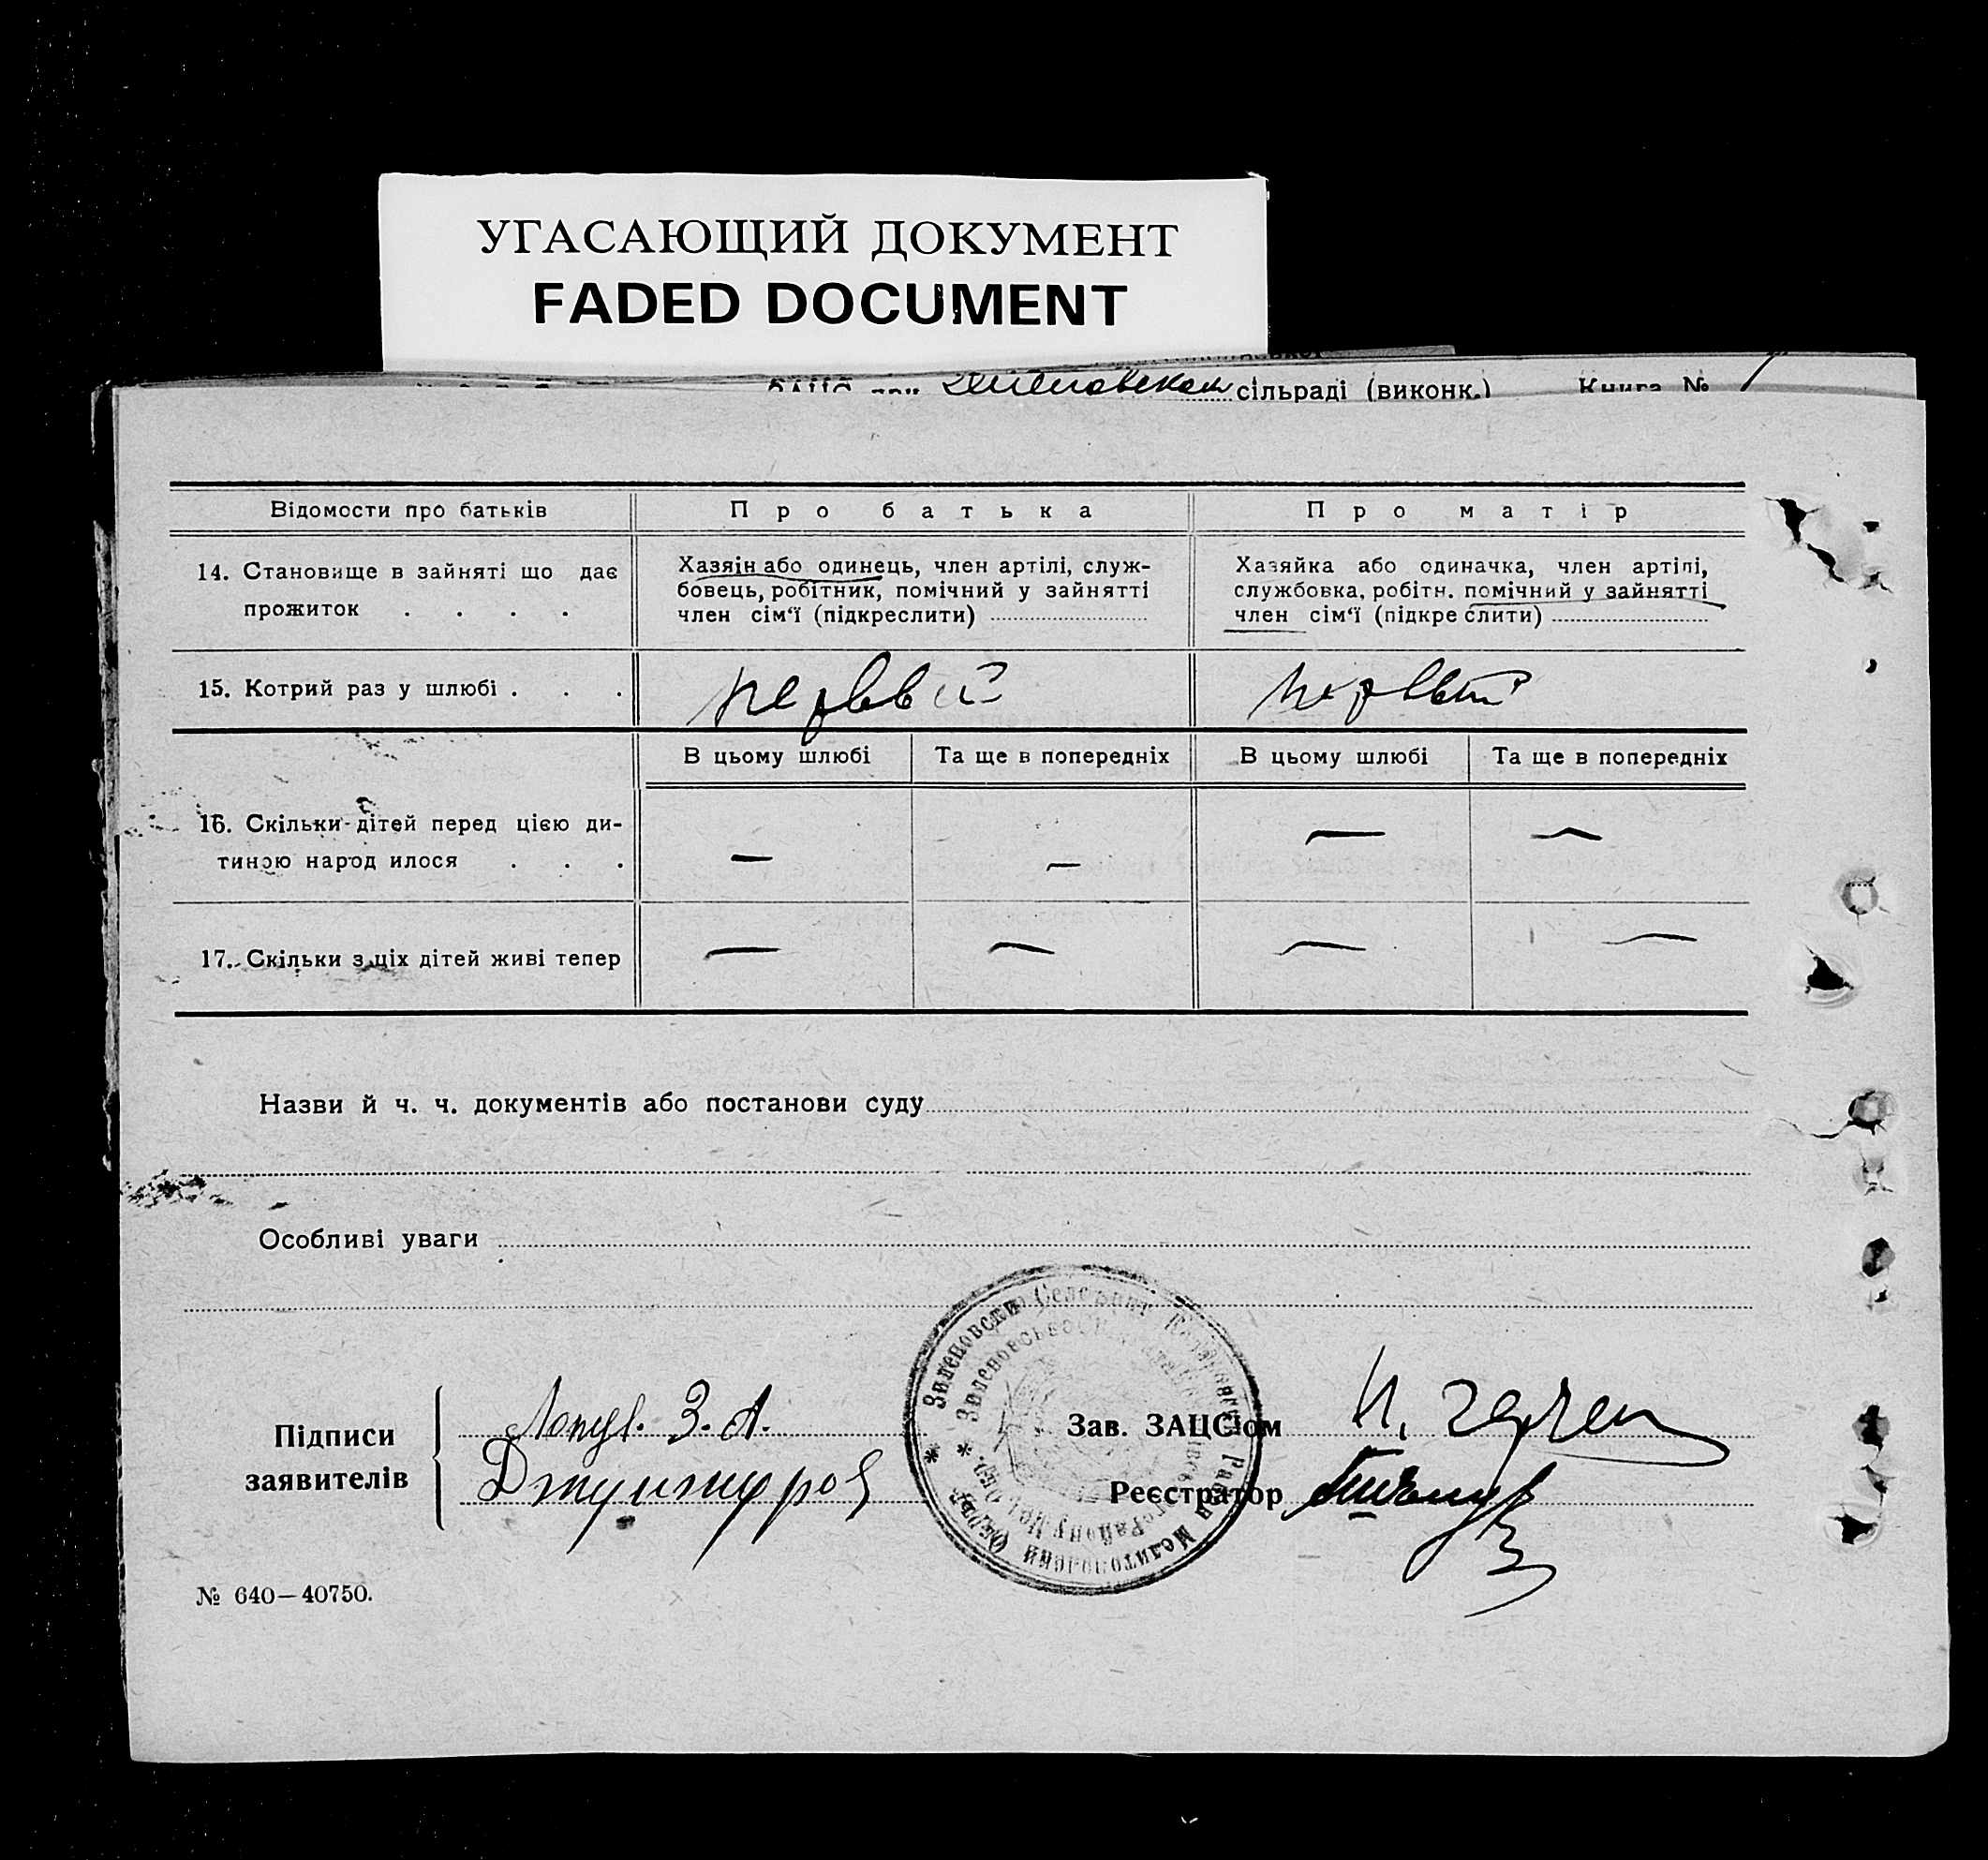 УГАСАЮЩИЙ ДОКУМЕНТ
FADED DOCUMENT
сільраді (виконк.) Книга №
Відомости про батьків
Про батька
Про матір
14. Становище в зайняті що дає
прожиток . . . .
Хазяін або одинець, член артілі, служ-
бовець, робітник, помічний у зайнятті
член сім‘ї (підкреслити)
Хазяйка або одиначка, член артілі,
службовка, робітн. помічний у зайнятті
член сім‘ї (підкре слити)
15. Котрий раз у шлюбі . . .
первый
первый
В цьому шлюбі
Та ще в попередніх
В цьому шлюбі
Та ще в попередніх
16. Скільки дітей перед цією ди-
тиною народ илося . . .
— — — —
17. Скільки з ціх дітей живі тепер
— — — —
Назви й ч. ч. документів або постанови суду
Особливі уваги
Підписи
заявителів
З. А.
Зав. ЗАЦСіом
Реєстратор
№ 640—40750.